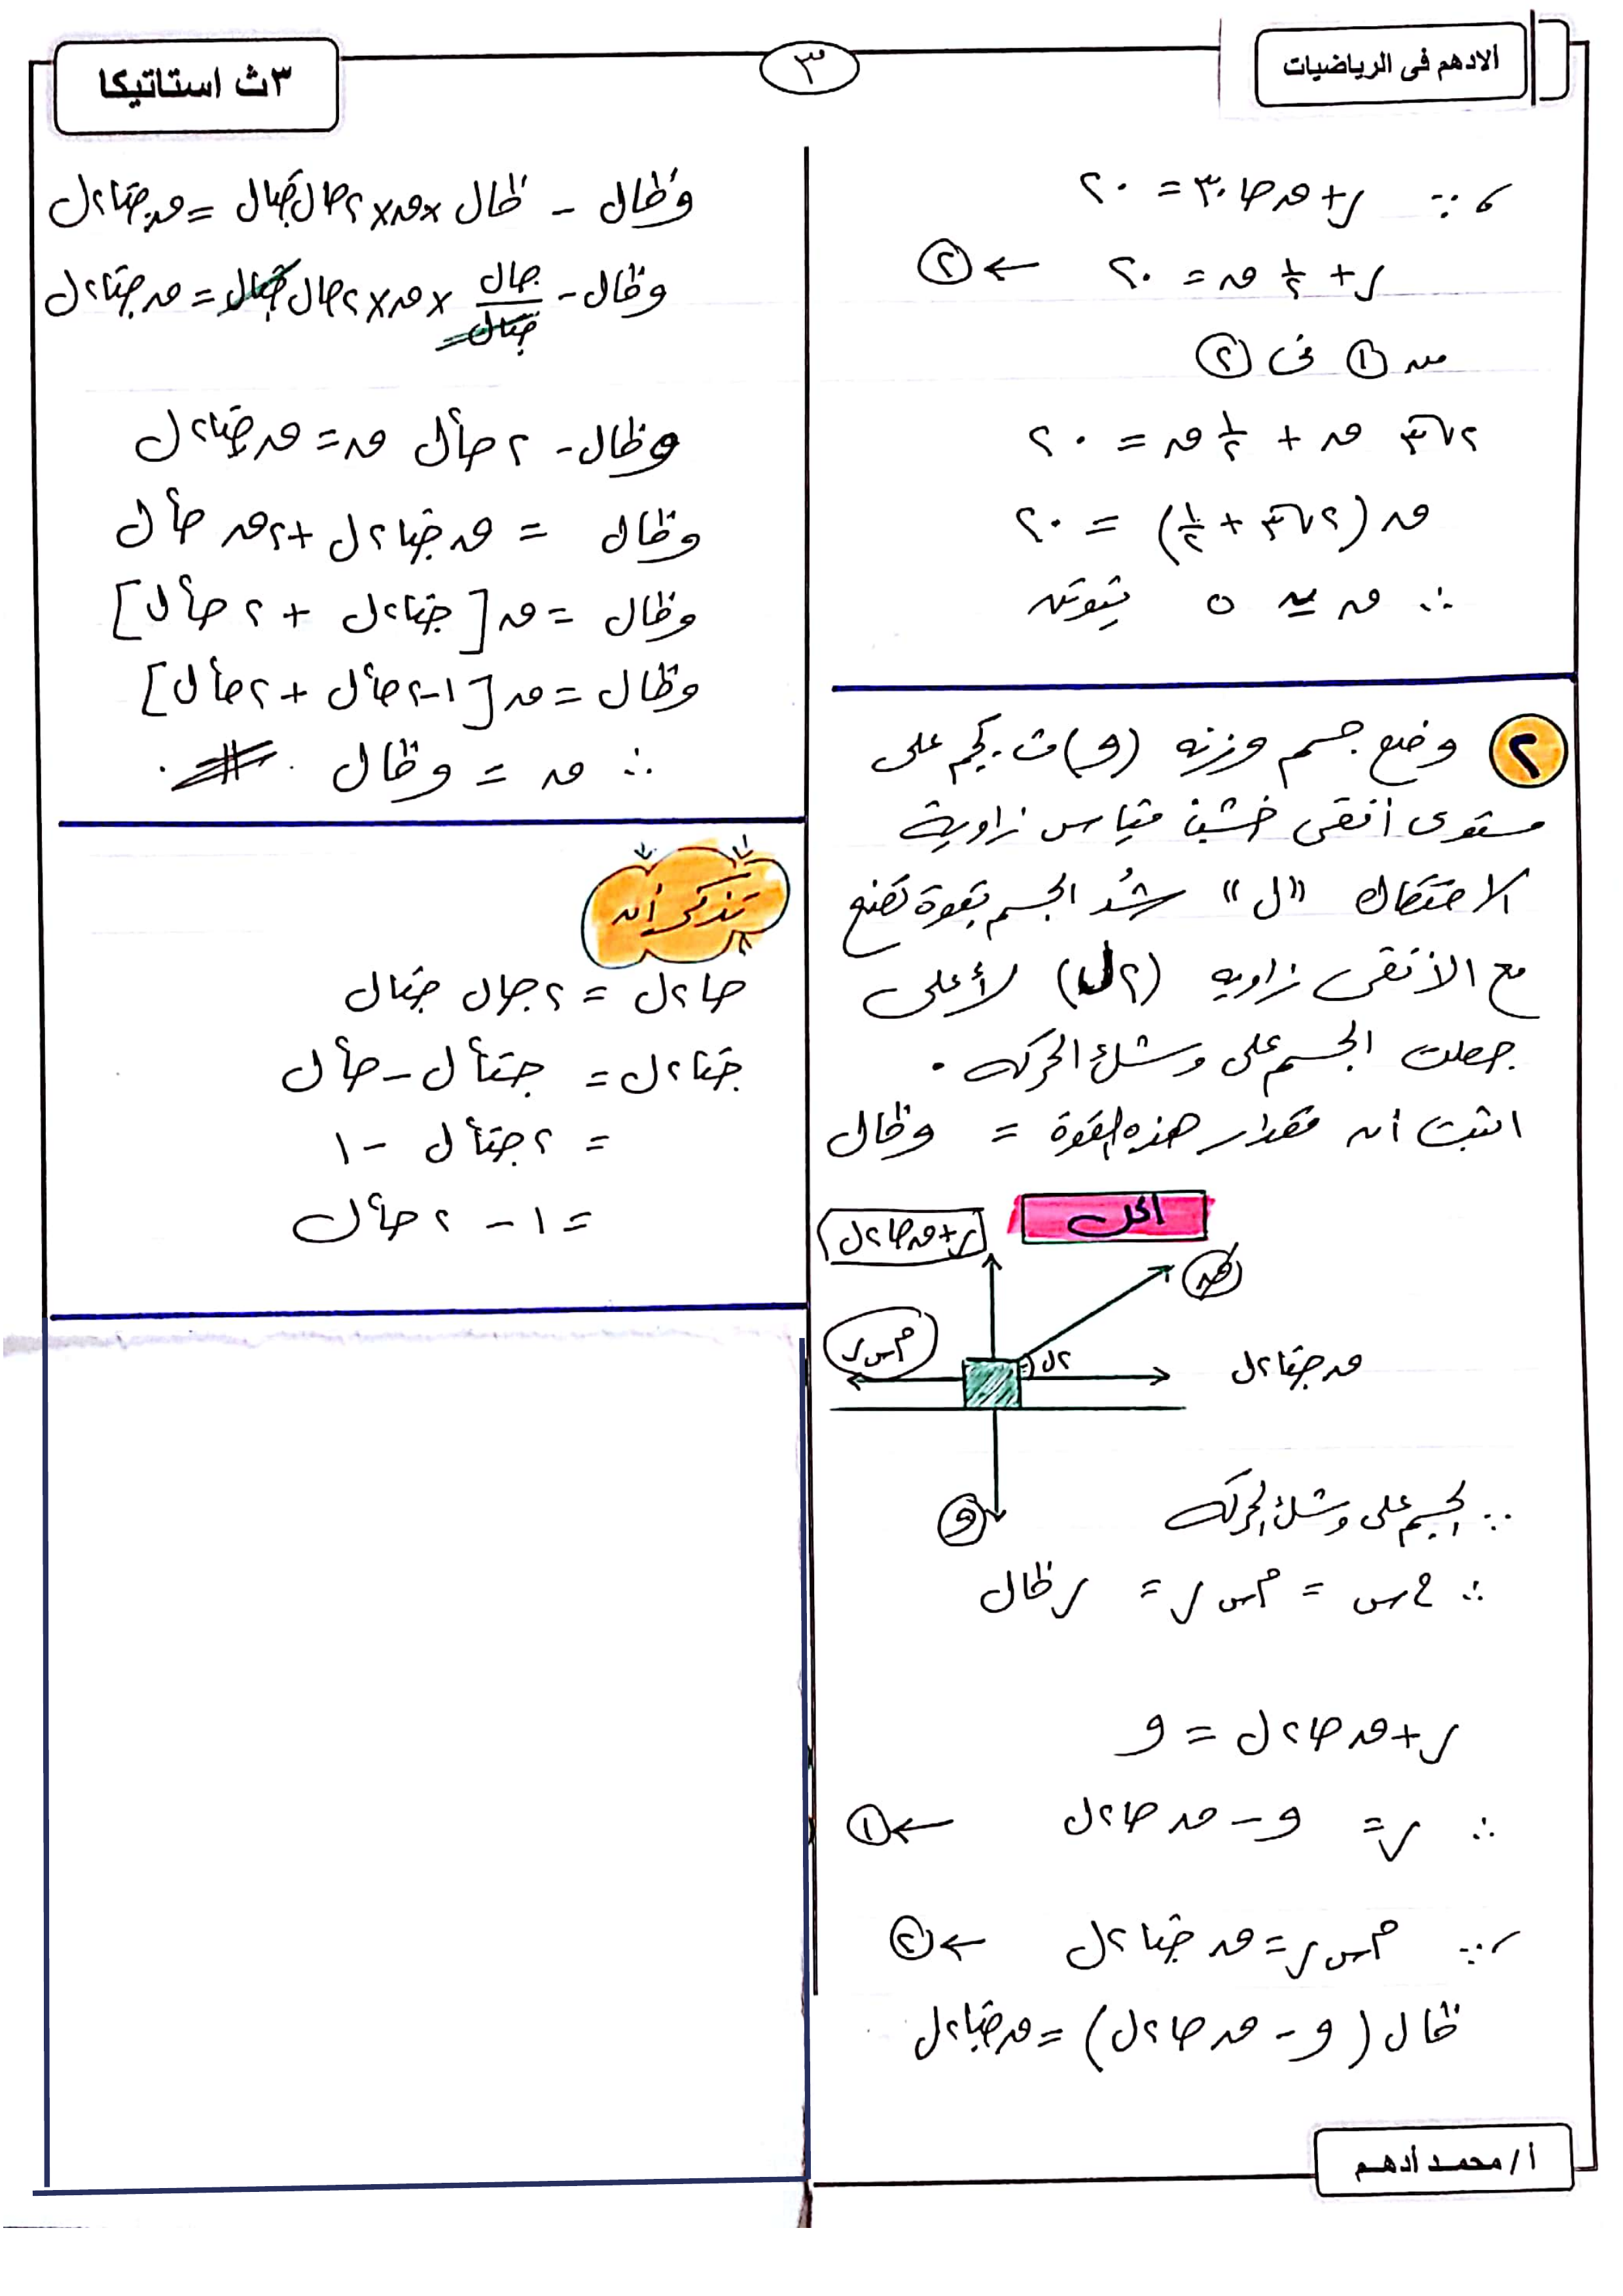 الادهم فى الرياضيات
٣
٣ث استاتيكا
، ∵ ر + ق حا ٣٠ = ٢٠
ر + ١/٢ ق = ٢٠ ← ②
من ① فى ②
٢√٣ ق + ١/٢ ق = ٢٠
ق (٢√٣ + ١/٢) = ٢٠
∴ ق ≃ ٥ نيوتن
٢ وضع جسم وزنه (و) ث.كجم على
مستوى أفقى خشن قياس زاوية
الاحتكاك "ل" شُد الجسم بقوة تصنع
مع الأفقى زاويه (٢ل) لأعلى
جعلت الجسم على وشك الحركه .
اثبت أن مقدار هذه القوة = و ظال
الحل
ر + ق حا٢ل
ق
م س ر
٢ل
ق جتا٢ل
و
∵ الجسم على وشك الحركه
∴ ح س = م س ر = ر ظال
ر + ق حا٢ل = و
∴ ر = و - ق حا٢ل ← ①
، ∵ م س ر = ق جتا٢ل ← ②
ظال (و - ق حا٢ل) = ق جتا٢ل
وظال - ظال × ق × ٢حال جتال = ق جتا٢ل
وظال - حال/جتال × ق × ٢حال جتال = ق جتا٢ل
وظال - ٢ حا²ل ق = ق جتا٢ل
وظال = ق جتا٢ل + ٢ق حا²ل
وظال = ق [جتا٢ل + ٢ حا²ل]
وظال = ق [١ - ٢حا²ل + ٢حا²ل]
∴ ق = و ظال #
تذكر أن
حا٢ل = ٢حال جتال
جتا٢ل = جتا²ل - حا²ل
= ٢جتا²ل - ١
= ١ - ٢حا²ل
أ/ محمد أدهم